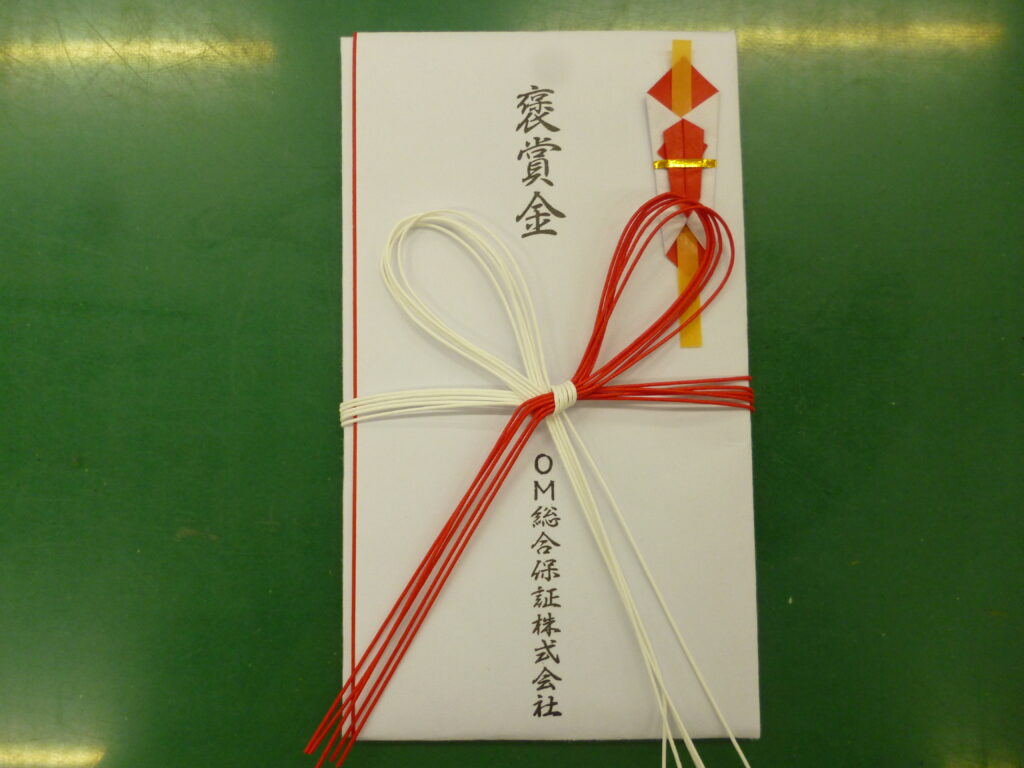 褒賞金
OM総合保証株式会社